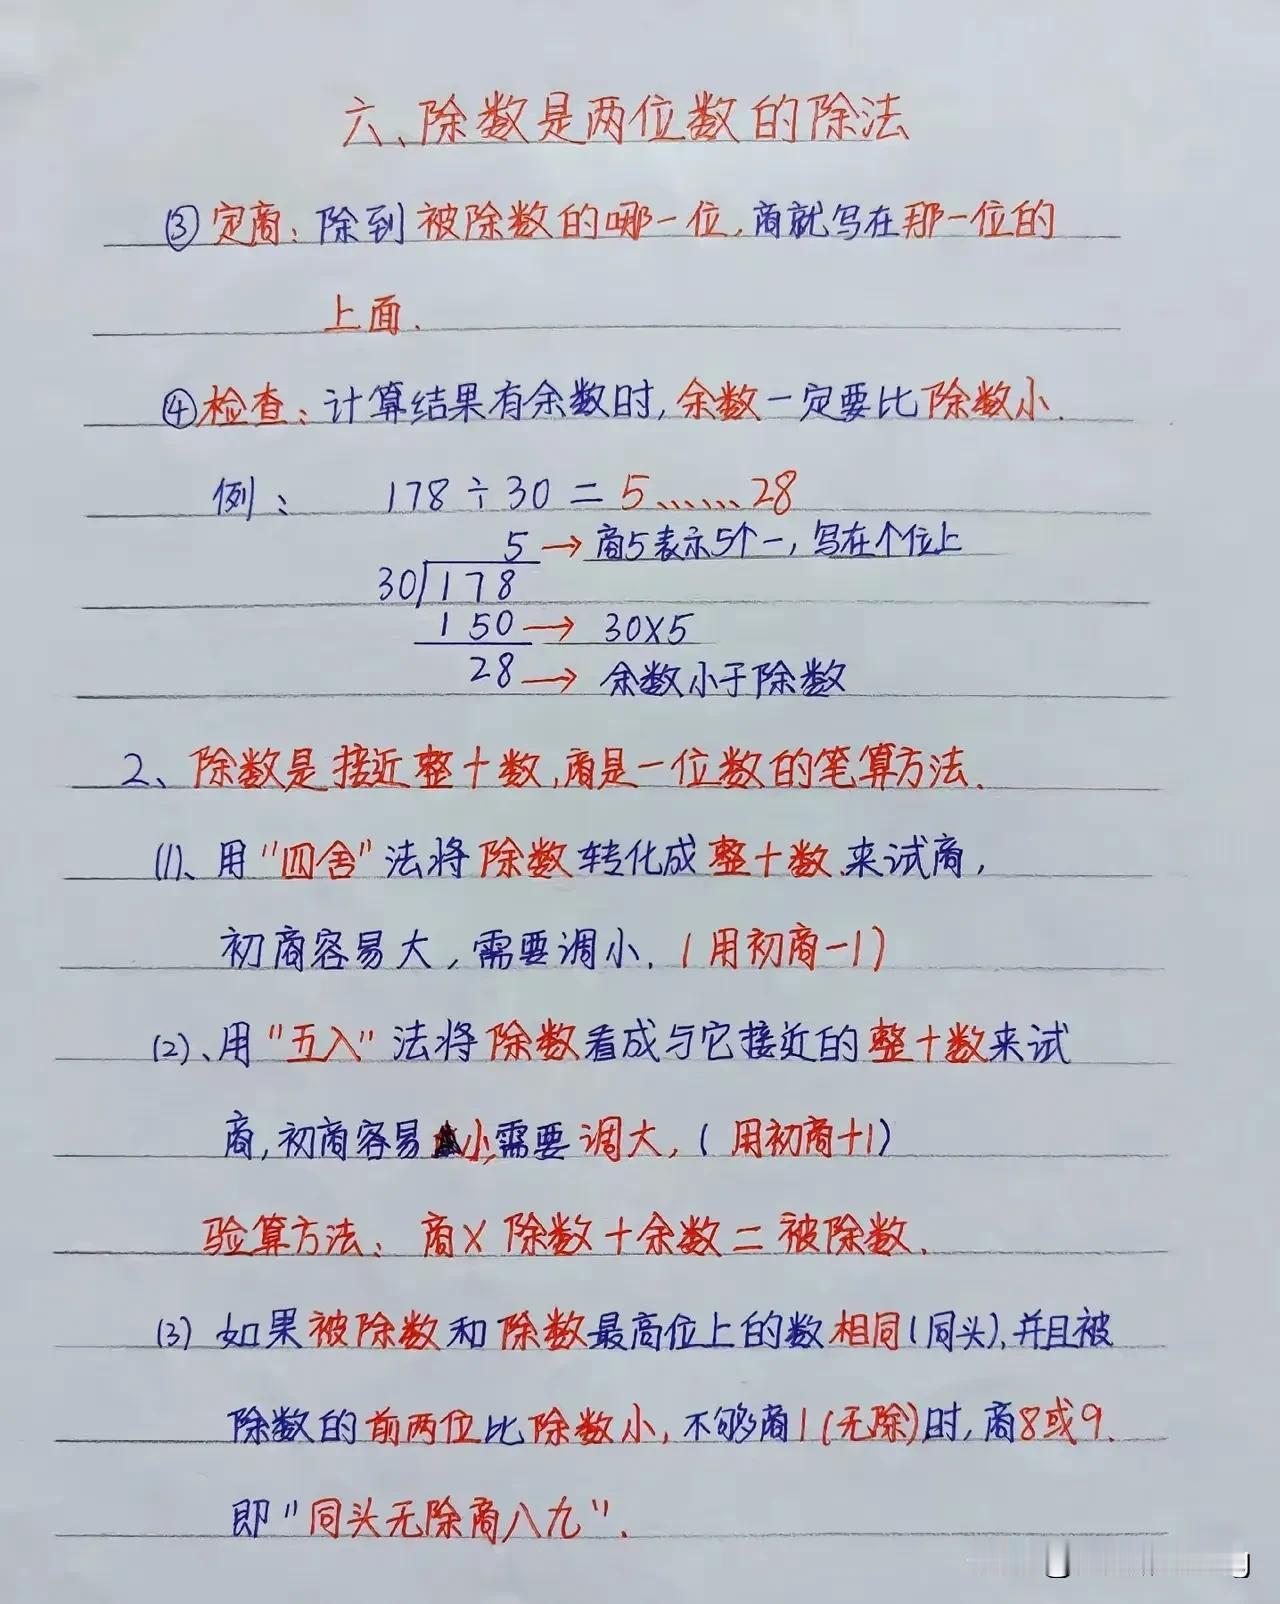 六、除数是两位数的除法
③定商：除到被除数的哪一位，商就写在那一位的
上面．
④检查：计算结果有余数时，余数一定要比除数小．
例： 178÷30＝5……28
5→商5表示5个一，写在个位上
30 178
150→30×5
28→余数小于除数
2、除数是接近整十数，商是一位数的笔算方法．
(1)、用“四舍”法将除数转化成整十数．来试商，
初商容易大，需要调小．(用初商－1)
(2)、用“五入”法将除数看成与它接近的整十数来试
商，初商容易小，需要调大，(用初商＋1)
验算方法：商×除数＋余数＝被除数．
(3)如果被除数和除数最高位上的数相同(同头)，并且被
除数的前两位比除数小，不够商1(无除)时，商8或9．
即“同头无除商八九”．